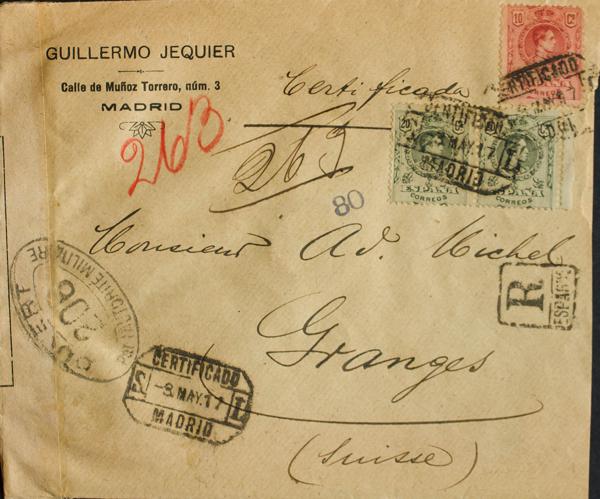 GUILLERMO JEQUIER
Calle de Muñoz Torrero, núm. 3
MADRID
10 Cs
CORREOS
Certificada
CERTIFICADO
MADRID
MAY.17
CORREOS
CORREOS
263
263
80
Monsieur Ad. Michel
R
ESPAGNE
OUVERT
206
PAR L'AUTORITÉ MILITAIRE
Granges
CERTIFICADO
-8.MAY.17
MADRID
(Suisse)